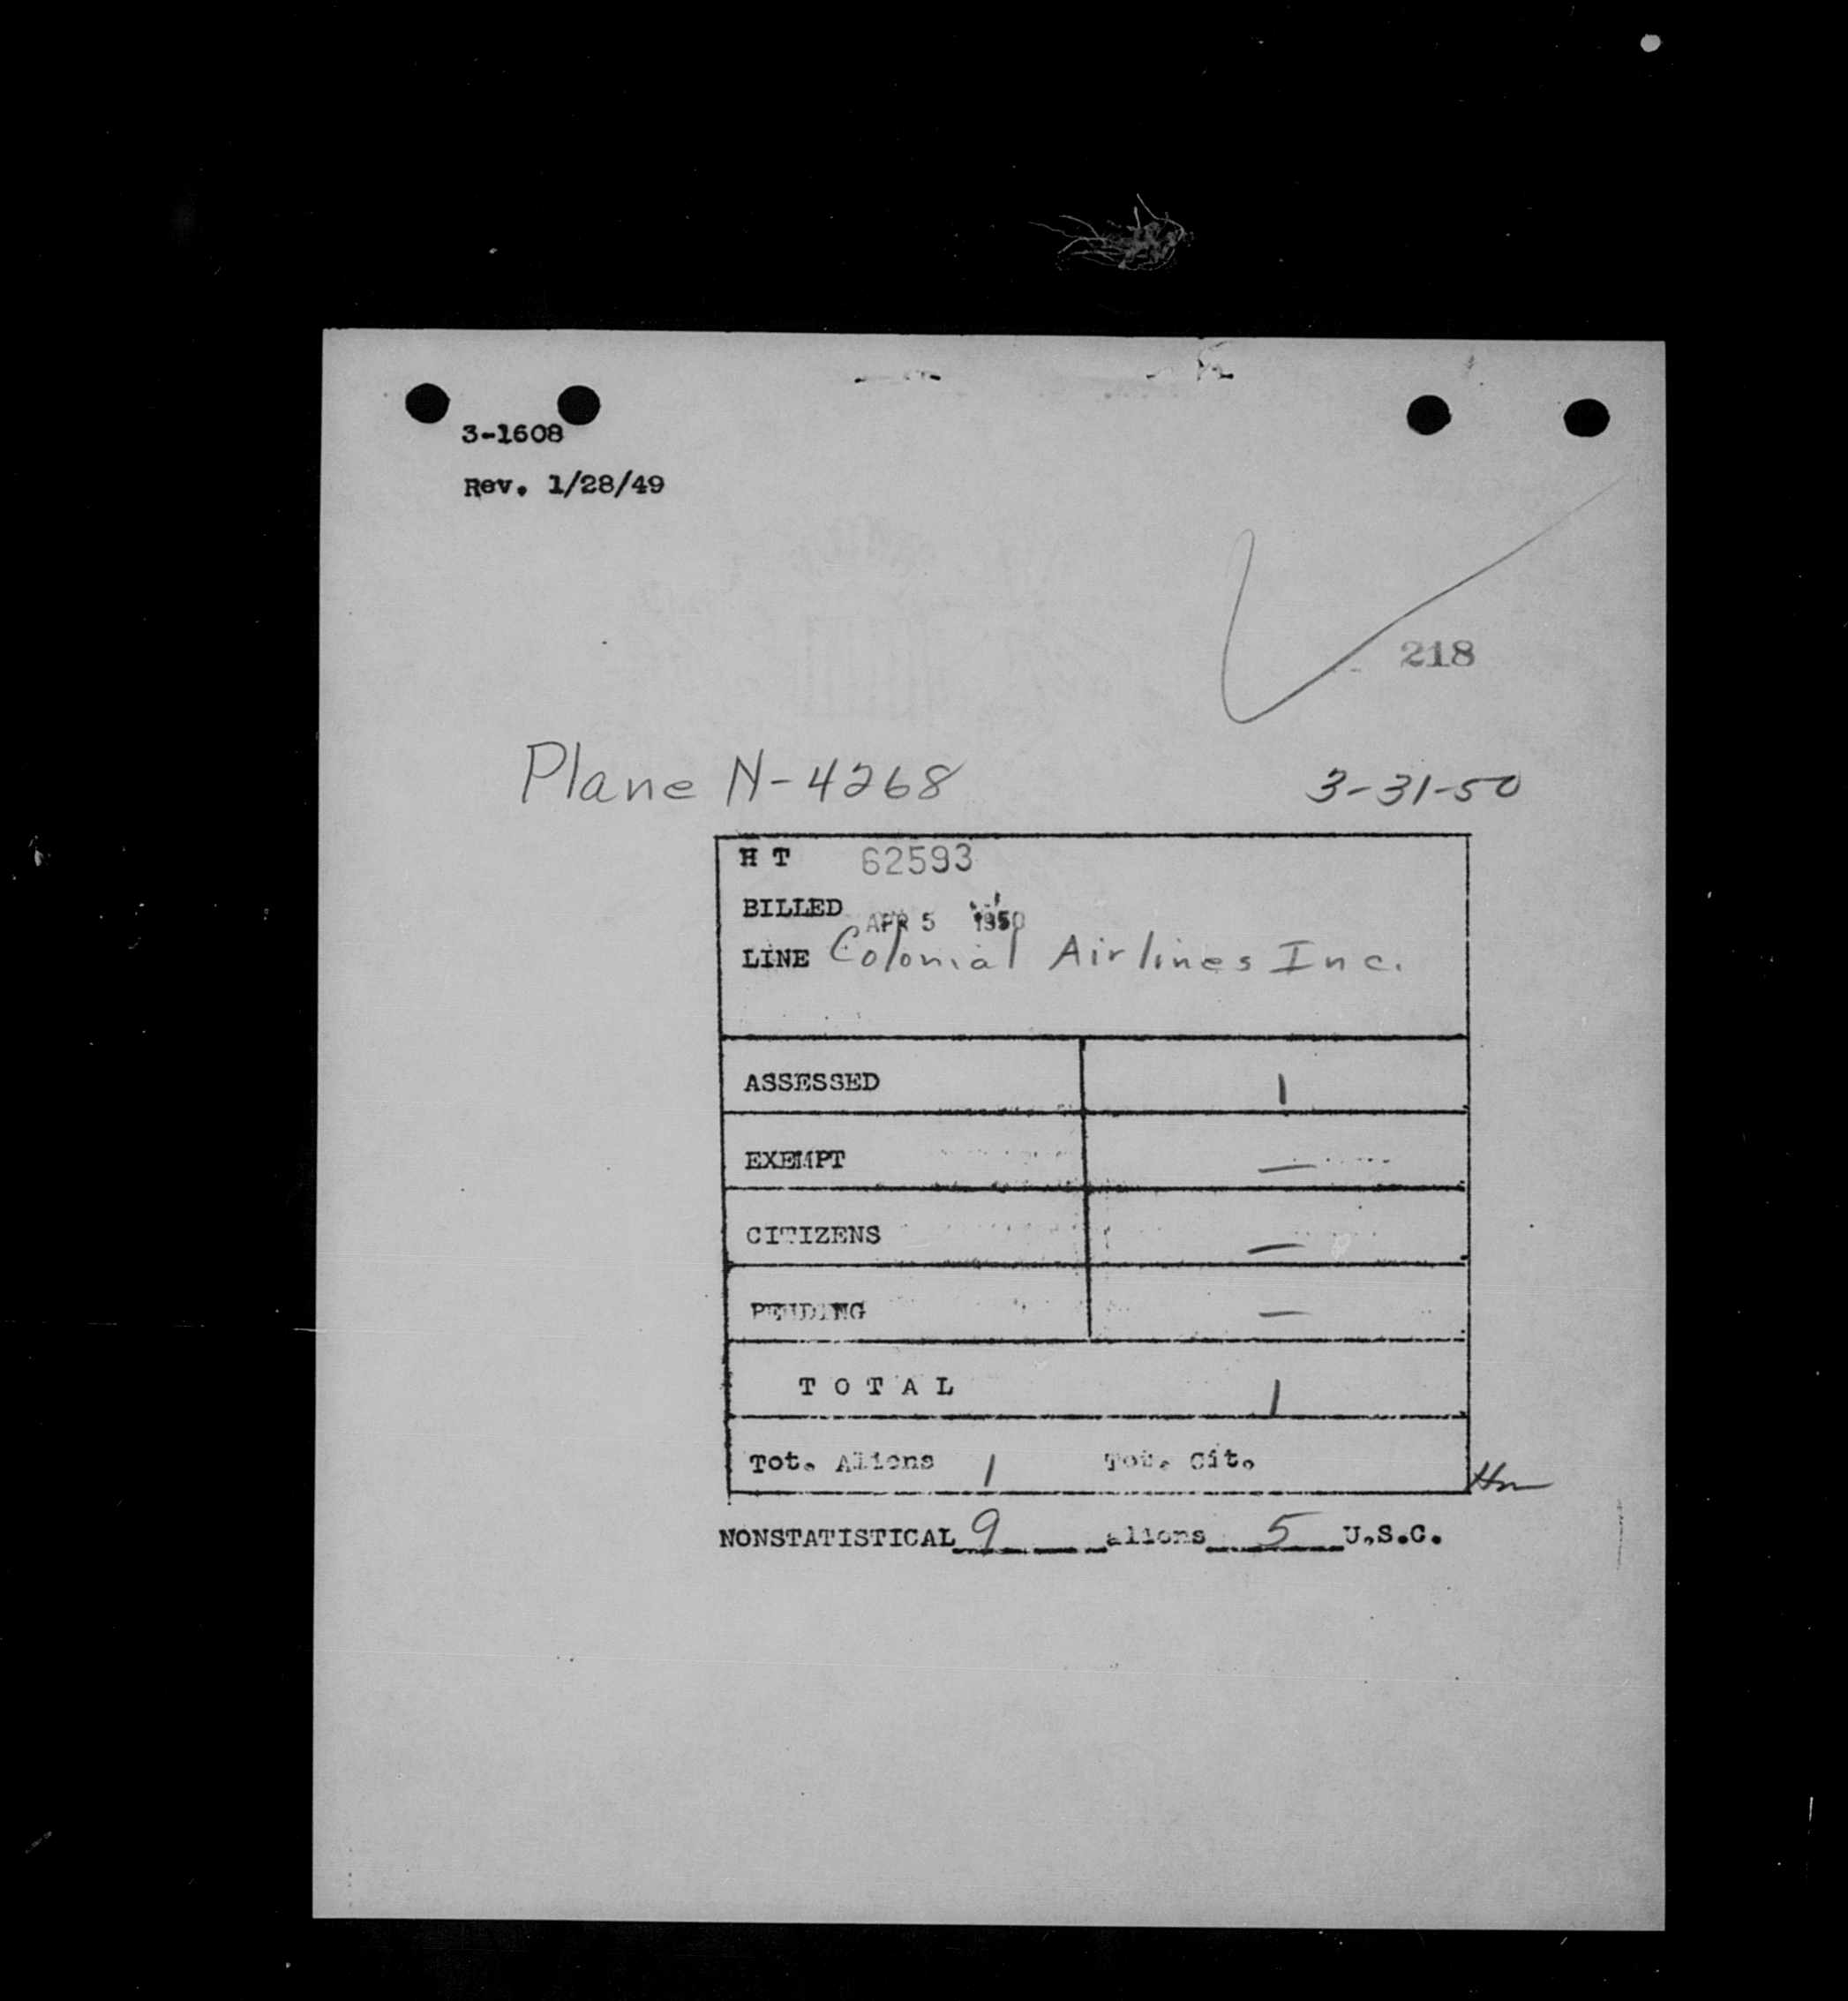 3-1608
Rev. 1/28/49
218
Plane N-4268 3-31-50
H T 62593
BILLED APR 5 1950
LINE Colonial Airlines Inc.
ASSESSED 1
EXEMPT —
CITIZENS —
PENDING —
T O T A L 1
Tot. Aliens 1 Tot. Cit.
NONSTATISTICAL 9 aliens 5 U.S.C.